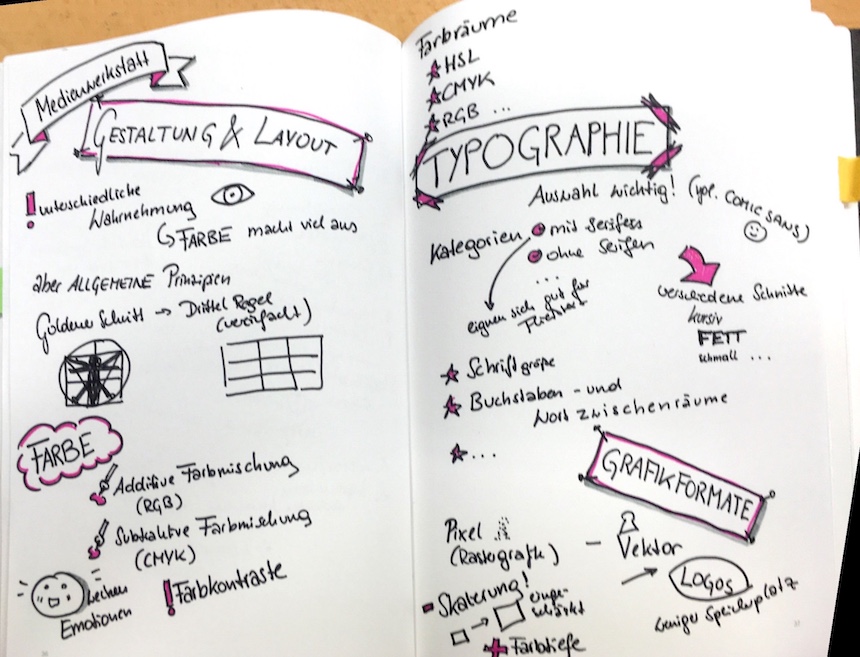 Medienwerkstatt
GESTALTUNG & LAYOUT
! unterschiedliche
Wahrnehmung
FARBE macht viel aus
aber ALLGEMEINE Prinzipien
Goldener Schnitt → Drittel Regel
(vereinfacht)
FARBE
Additive Farbmischung
(RGB)
Subtraktive Farbmischung
(CMYK)
wecken
Emotionen
! Farbkontraste
Farbräume
HSL
CMYK
RGB ...
TYPOGRAPHIE
Auswahl wichtig! (vgl. COMIC SANS)
Kategorien
mit Serifen
ohne Serifen
...
eignen sich gut für
Fließtext
verschiedene Schnitte
kursiv
FETT
schmall ...
Schriftgröße
Buchstaben - und
Wort zwischenräume
...
GRAFIKFORMATE
Pixel
(Rastergrafik)
– Vektor
LOGOS
weniger Speicherplatz
- Skalierung!
einge-
schränkt
+ Farbtiefe